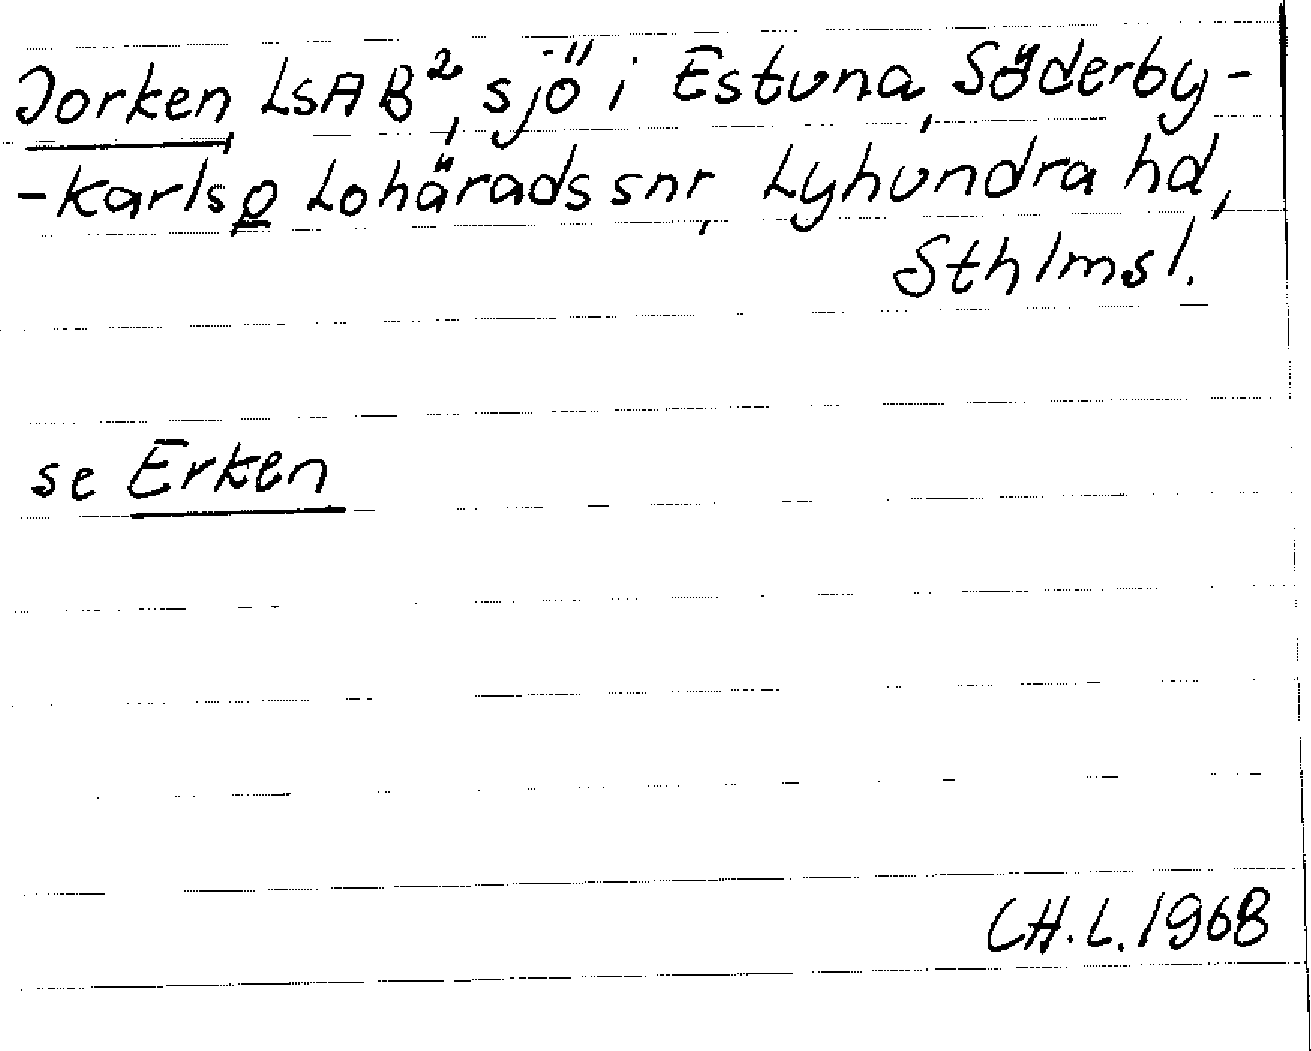 Jorken, LSAB², sjö i Estuna, Söderby-
-Karls o Lohärads snr, Lyhundra hd,
Sthlms l.
se Erken
CH.L. 1968